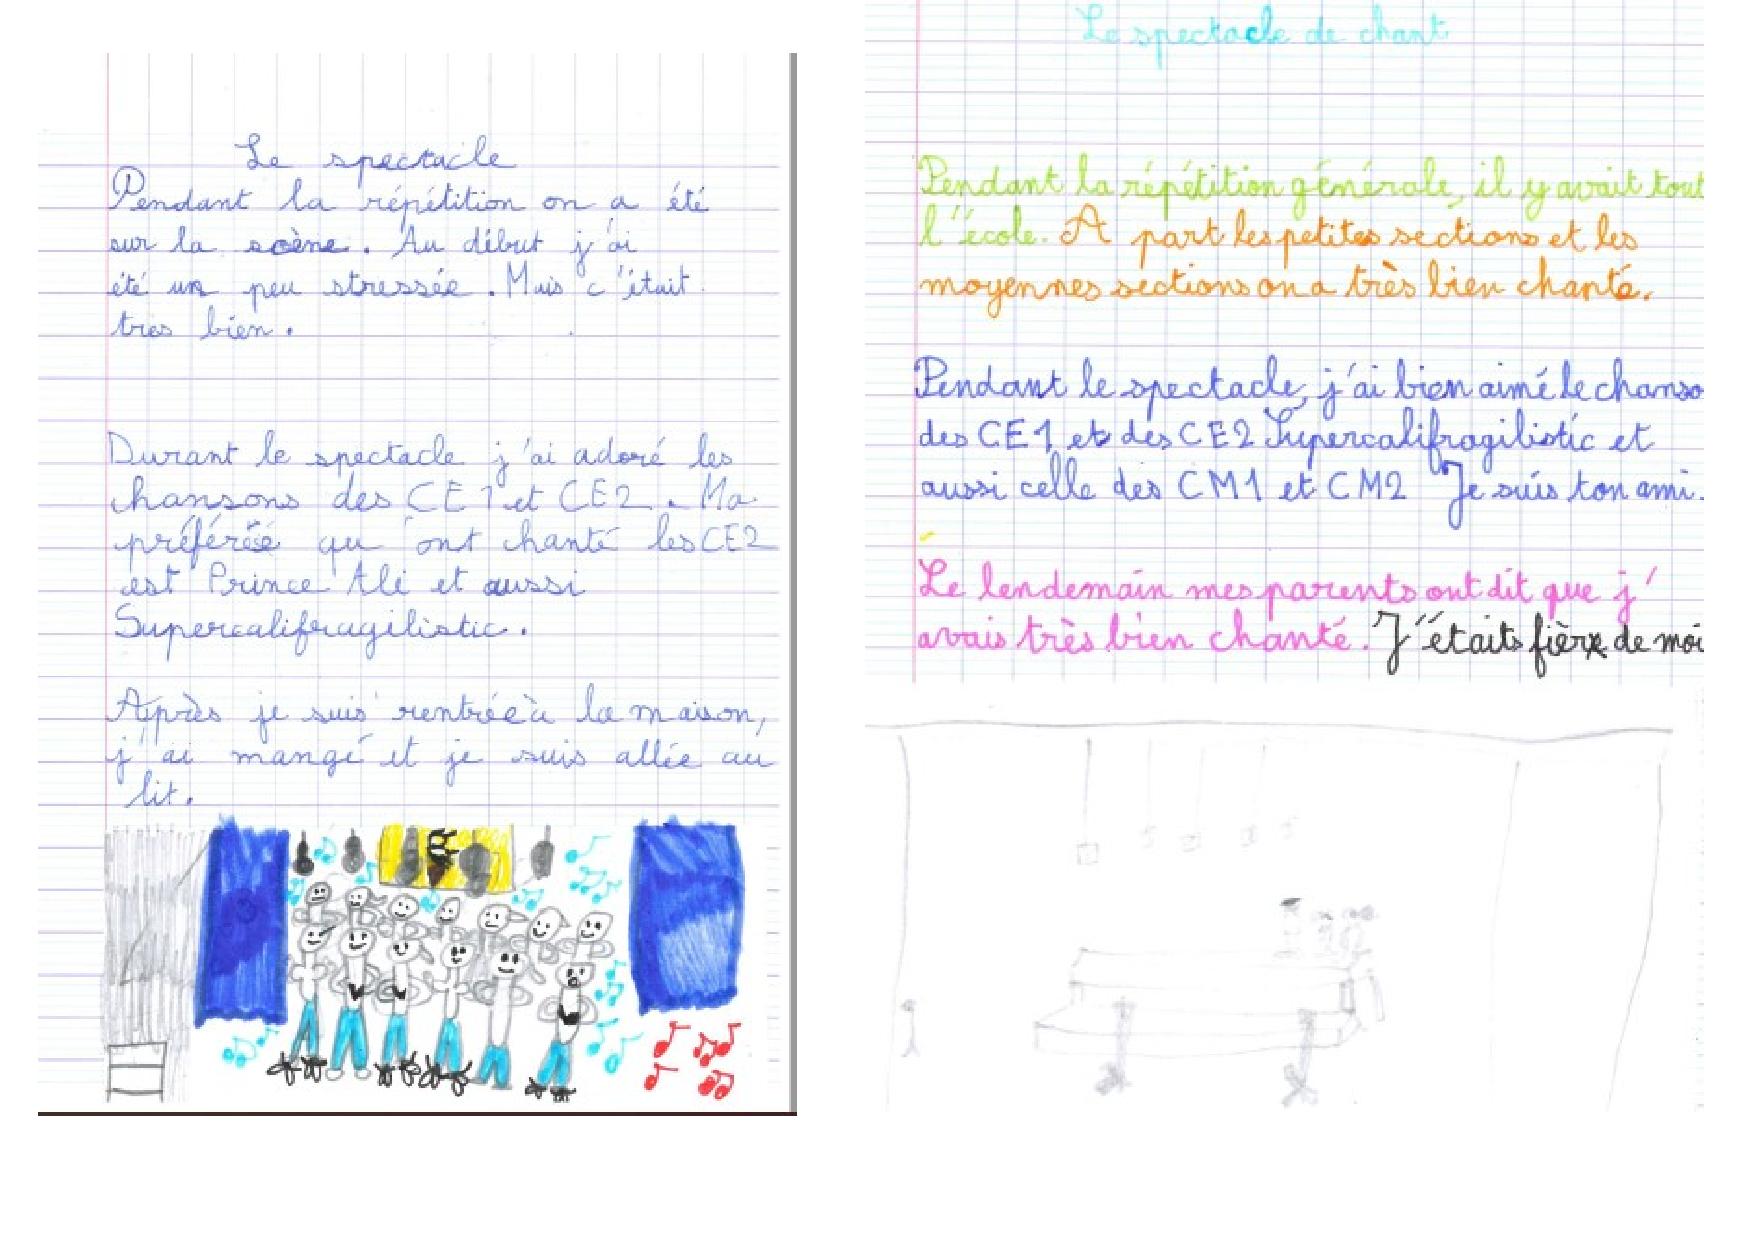 Le spectacle
Pendant la répétition on a été
sur la scène. Au début j'ai
été un peu stressée. Mais c'était
très bien.
Durant le spectacle j'ai adoré les
chansons des CE1 et CE2. Ma
préférée qu'ont chanté les CE2
est Prince Ali et aussi
Supercalifragilistic.
Après je suis rentrée à la maison,
j'ai mangé et je suis allée au
lit.
Le spectacle de chant
Pendant la répétition générale, il y avait tout
l'école. A part les petites sections et les
moyennes sections on a très bien chanté.
Pendant le spectacle, j'ai bien aimé le chanso
des CE1 et des CE2 Supercalifragilistic et
aussi celle des CM1 et CM2 "Je suis ton ami.
Le lendemain mes parents ont dit que j'
avais très bien chanté. J'étaits fière de moi